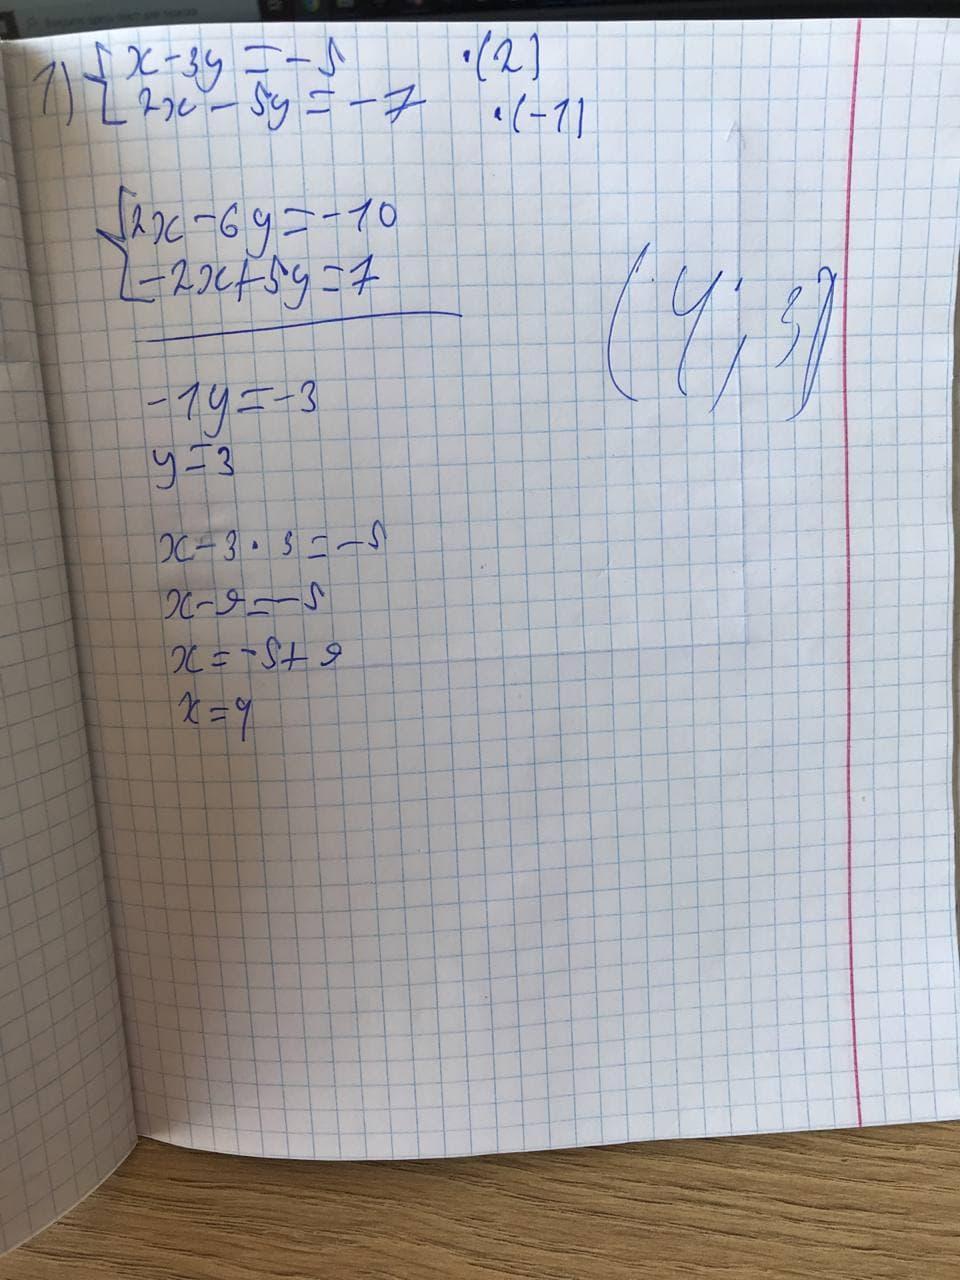 1) { x-3y=-5 ·(2)
2x-5y=-7 ·(-1)
{ 2x-6y=-10
-2x+5y=7
(4;3)
-1y=-3
y=3
x-3·3=-5
x-9=-5
x=-5+9
x=4